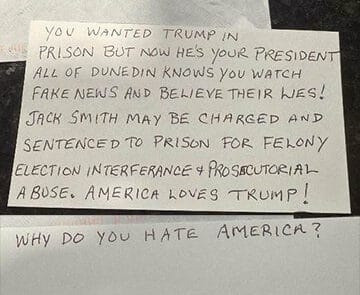 YOU WANTED TRUMP IN
PRISON BUT NOW HE'S YOUR PRESIDENT
ALL OF DUNEDIN KNOWS YOU WATCH
FAKE NEWS AND BELIEVE THEIR LIES!
JACK SMITH MAY BE CHARGED AND
SENTENCED TO PRISON FOR FELONY
ELECTION INTERFERANCE & PROSECUTORIAL
ABUSE. AMERICA LOVES TRUMP!
WHY DO YOU HATE AMERICA?